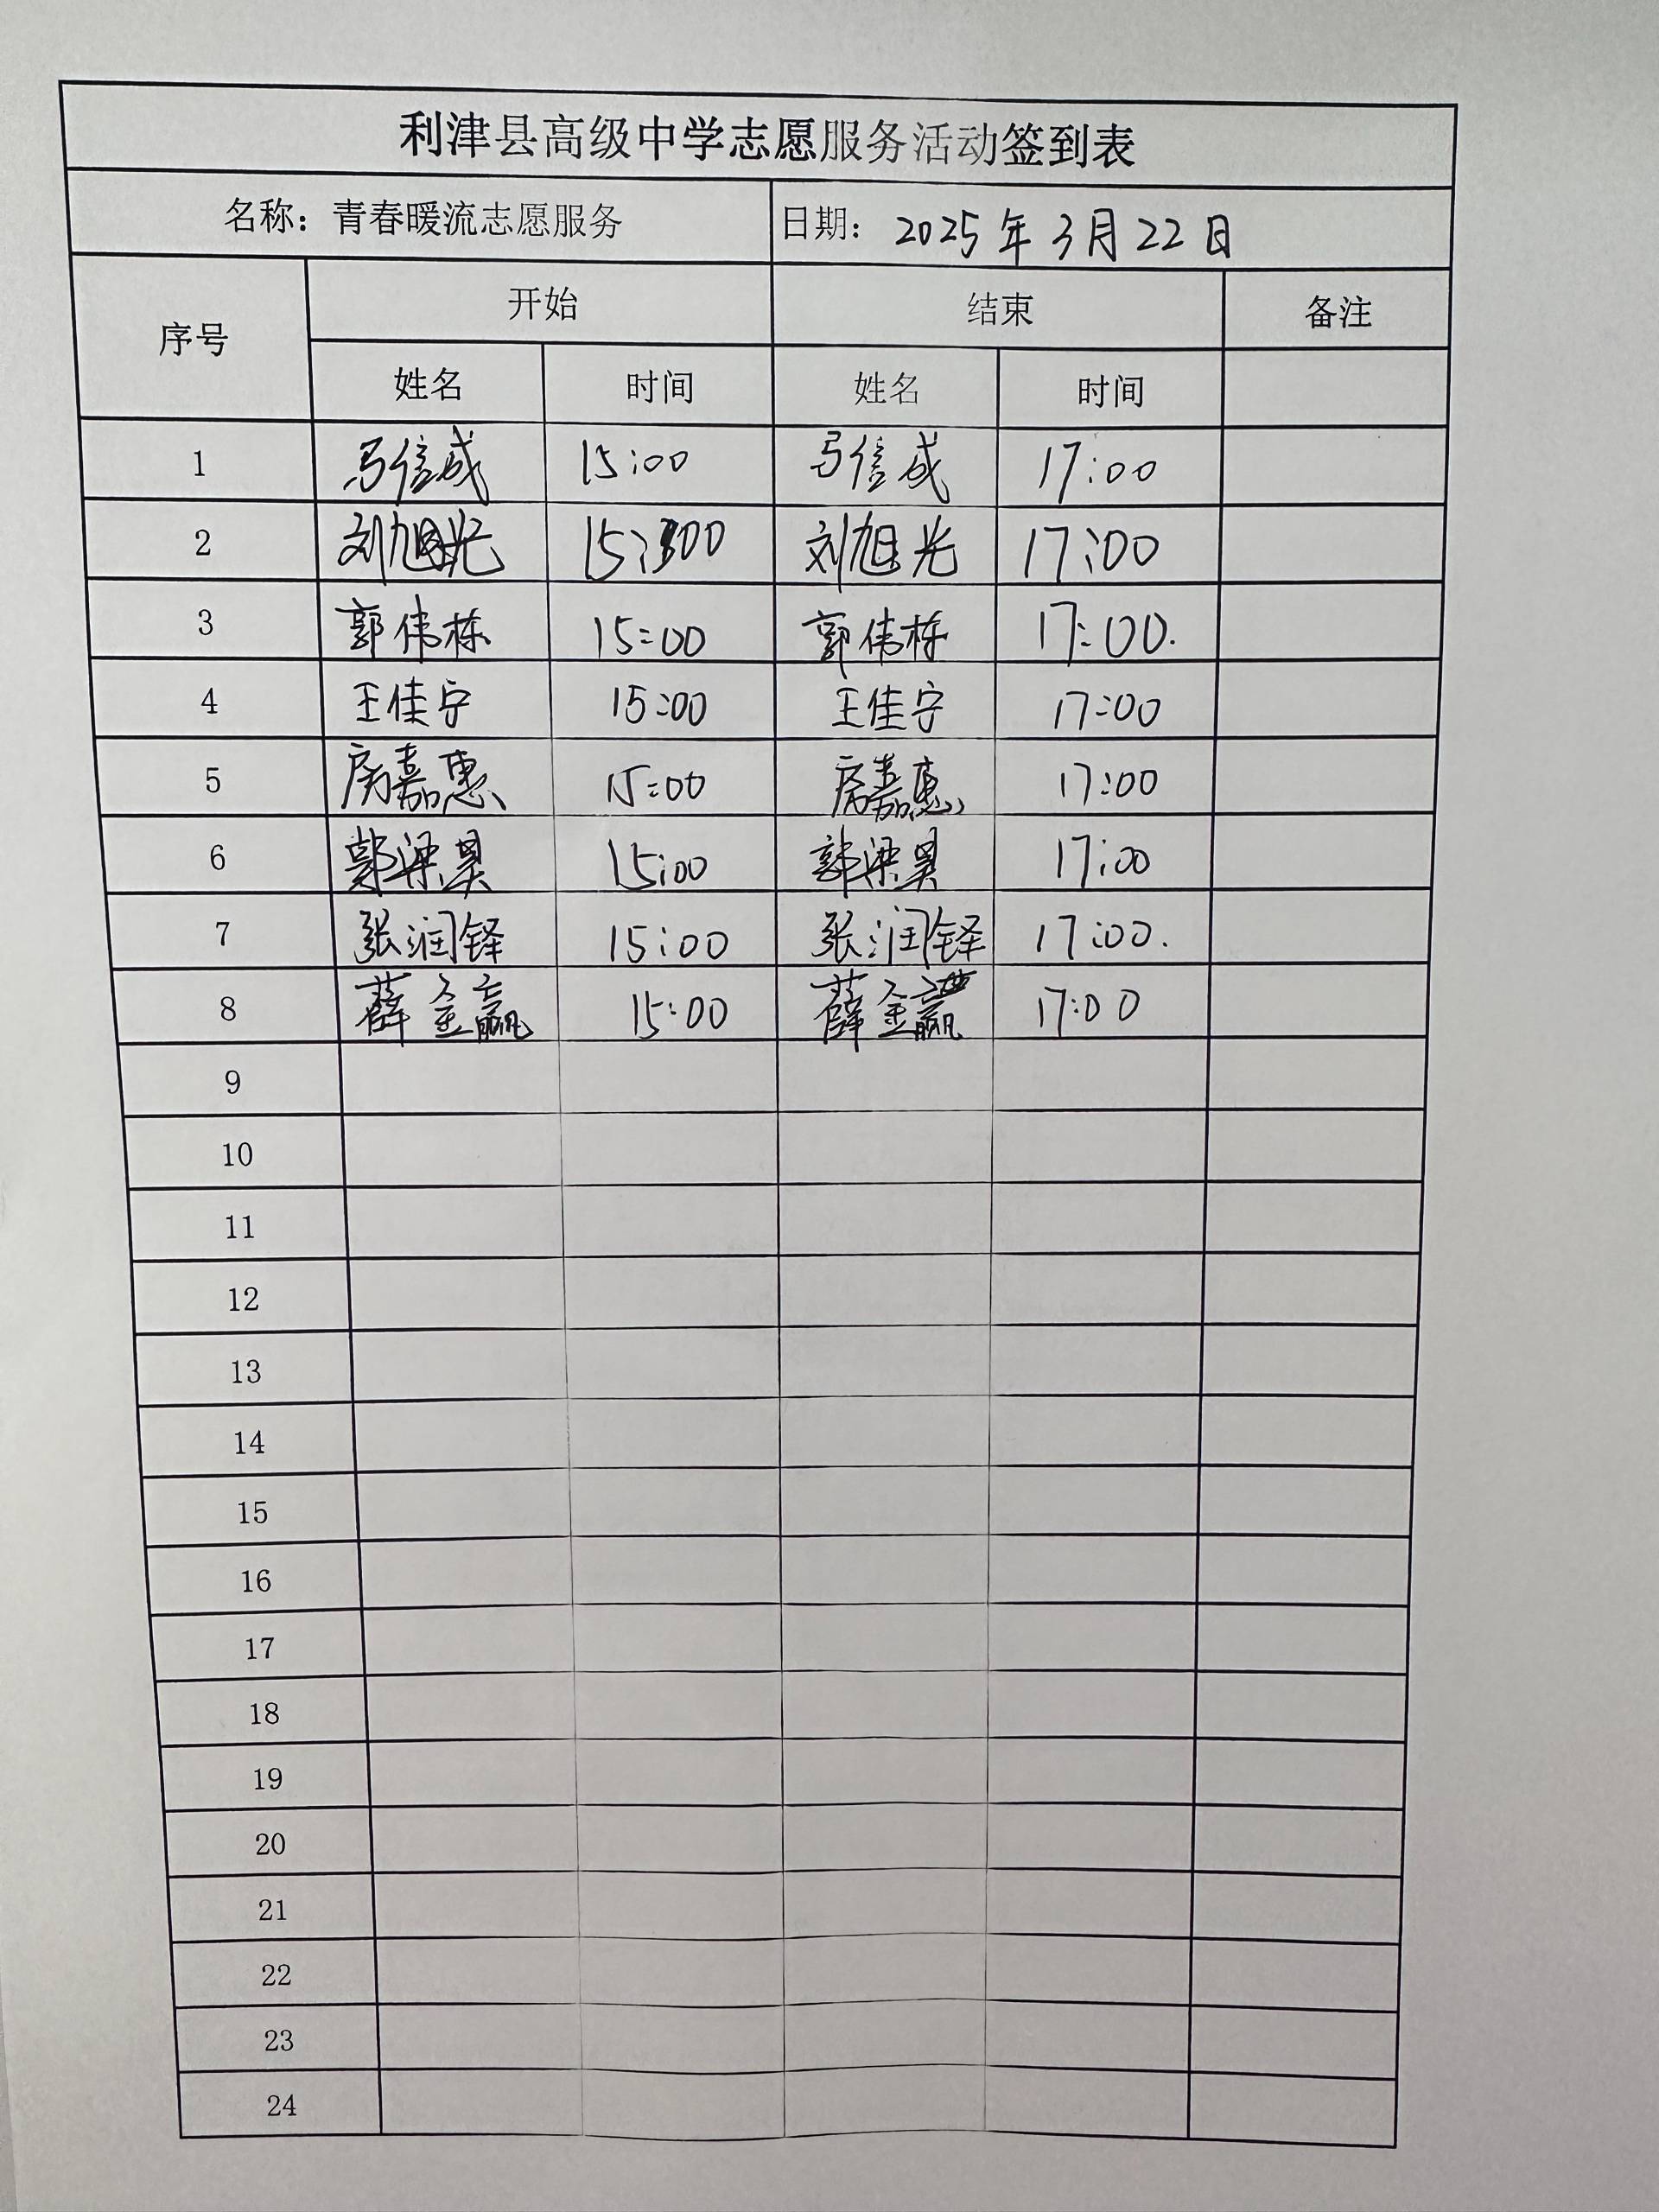 利津县高级中学志愿服务活动签到表
名称：青春暖流志愿服务 日期：2025年3月22日
序号 开始 结束 备注
姓名 时间 姓名 时间
1 马信成 15:00 马信成 17:00
2 刘旭光 15:00 刘旭光 17:00
3 郭伟栋 15:00 郭伟栋 17:00.
4 王佳宁 15:00 王佳宁 17:00
5 房嘉惠 15:00 房嘉惠 17:00
6 郭梁昊 15:00 郭梁昊 17:00
7 张润铎 15:00 张润铎 17:00.
8 薛金赢 15:00 薛金赢 17:00
9
10
11
12
13
14
15
16
17
18
19
20
21
22
23
24